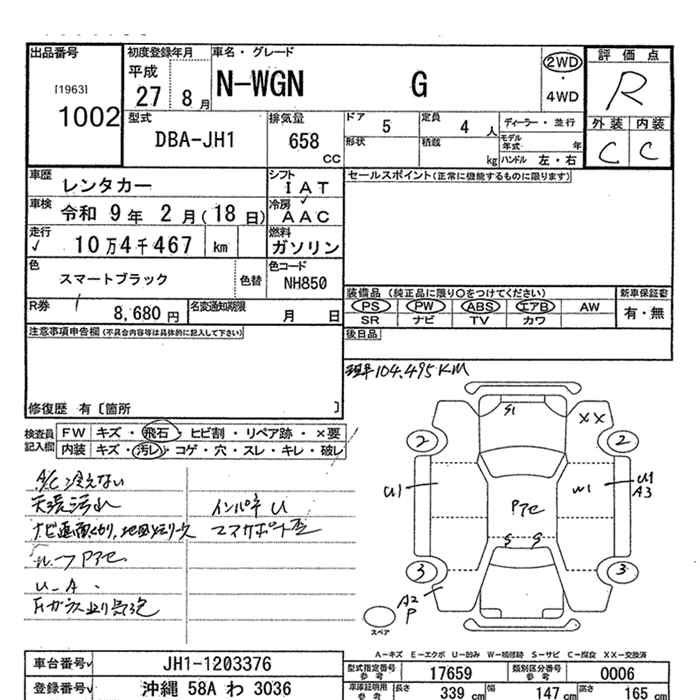 出品番号
[1963]
1002
初度登録年月
平成
27 8 月
車名・グレード
N-WGN G
2WD
・
4WD
評価点
R
外装 内装
C C
型式
DBA-JH1
排気量
658
CC
ドア
5
定員
4 人
形状
積載
kg
ディーラー・並行
モデル年式 年
ハンドル 左・右
車歴
レンタカー
シフト
I A T
車検
令和 9 年 2 月 (18 日)
冷房
A A C
走行
10 万 4 千 467 km
燃料
ガソリン
色
スマートブラック
色替
色コード
NH850
R券
8,680 円
名変通知期限
月 日
セールスポイント(正常に機能するものに限ります)
装備品 (純正品に限り○をつけてください)
新車保証書
PS PW ABS エアB AW
有・無
SR ナビ TV カワ
後日品
注意事項申告欄(不具合内容等は具体的に記入して下さい)
修復歴 有 [箇所 ]
現車104.495KM
検査員記入欄
FW キズ・飛石・ヒビ割・リペア跡・×要
内装 キズ・汚レ・コゲ・穴・スレ・キレ・破レ
A/C冷えない
天張汚れ
ルーフ Pアセ
U-A.
インパネ U
S1
XX
2
2
U1
Pアセ
W1
U1
A3
S S
3
3
A2
P
スペア
A-キズ E-エクボ U-凹み W-補修跡 S-サビ C-腐食 XX-交換済
車台番号
JH1-1203376
登録番号
沖縄 58A わ 3036
型式指定番号
参考
17659
類別区分番号
参考
0006
車庫証明用
参考
長さ 339 cm
幅 147 cm
高さ 165 cm